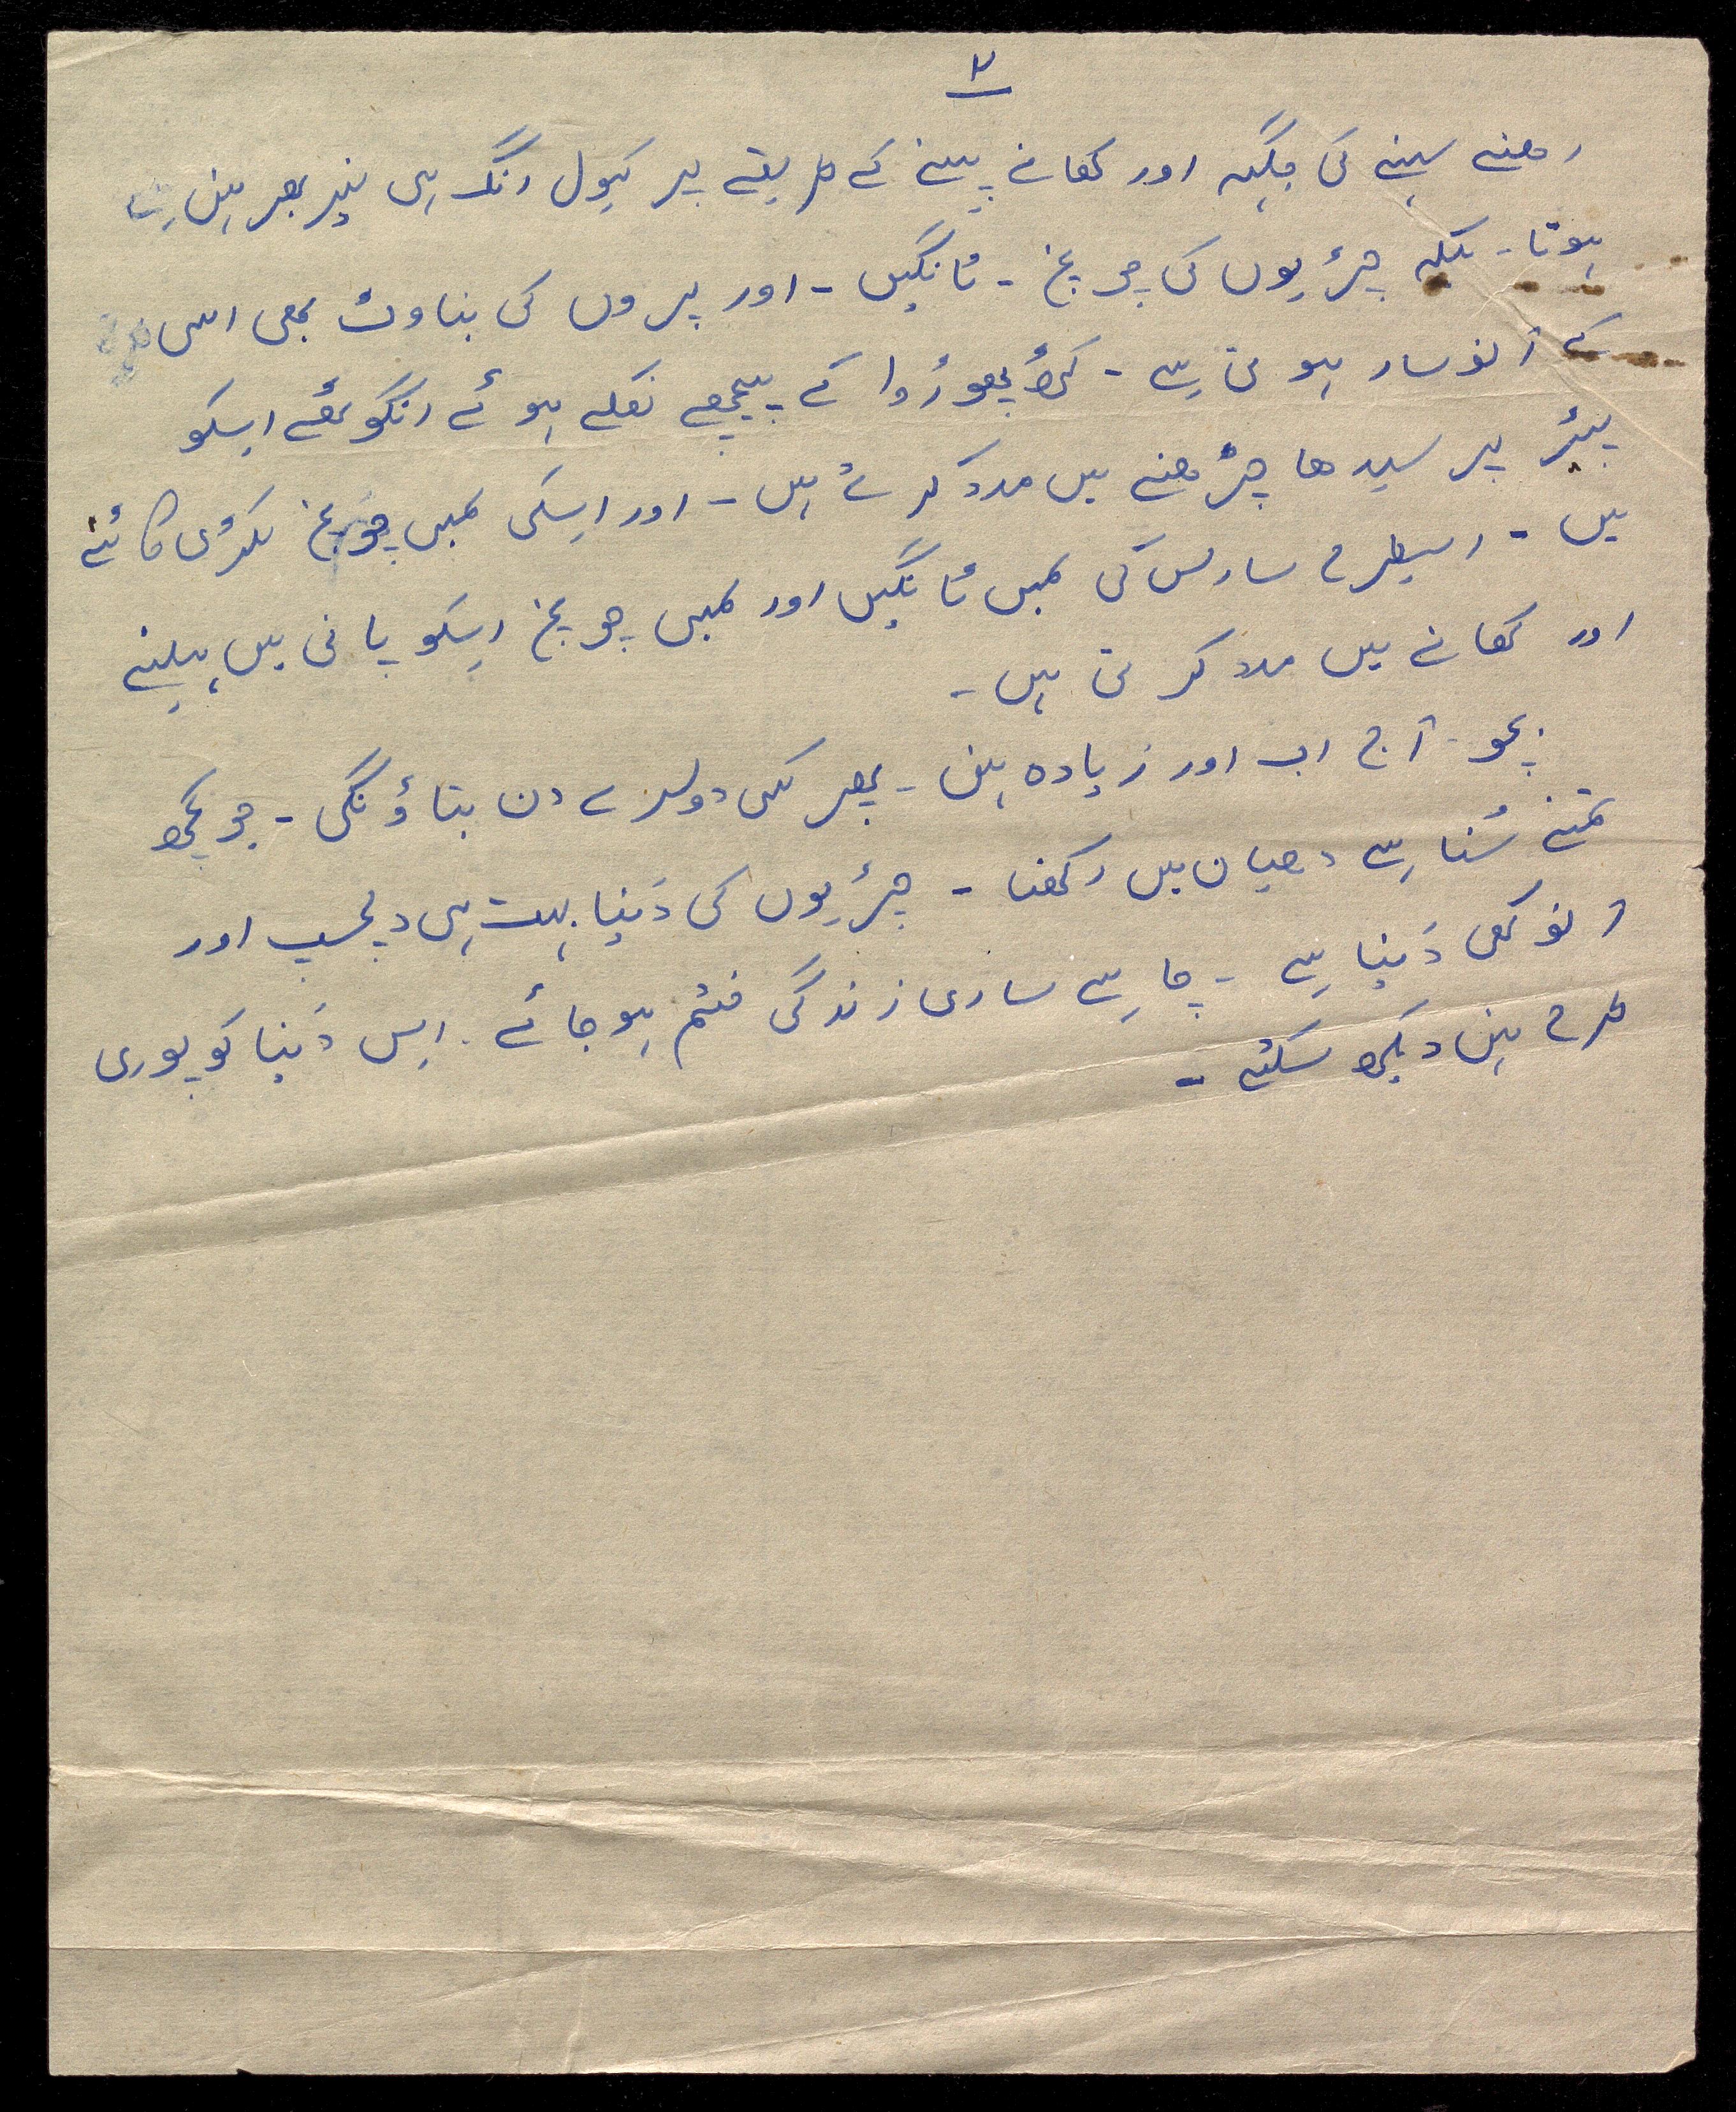 ۳
رھنے سہنے کی جگہ اور کھانے پینے کے طریقے پر کیول رنگ ہی نِربھر نہیں
ہوتا۔ بلکہ چڑیوں کی چونچ ۔ ٹانگیں ۔ اور پروں کی بناوٹ بھی اسی
کے انوسار ہوتی ہے ۔ کٹھ پھوڑوا کے پیچھے نکلے ہوئے انگوٹھے اِسکو
پیڑ پر سیدھا چڑھنے میں مدد کرتے ہیں ۔ اور اِسکی لمبی چونچ لکڑی کاٹنے
میں ۔ اسیطرح سارس کی لمبی ٹانگیں اور لمبی چونچ اِسکو پانی میں ہِلنے
اور کھانے میں مدد کرتی ہیں ۔
بچو ۔ آج اب اور زیادہ نہیں ۔ پھر کسی دوسرے دن بتاؤنگی ۔ جو کچھ
تمنے سُنا ہے دھیان میں رکھنا ۔ چڑیوں کی دُنیا بہت ہی دلچسپ اور
انوکھی دُنیا ہے ۔ چاہے ساری زندگی ختم ہو جائے ۔ اِس دُنیا کو پوری
طرح نہیں دیکھ سکتے ۔